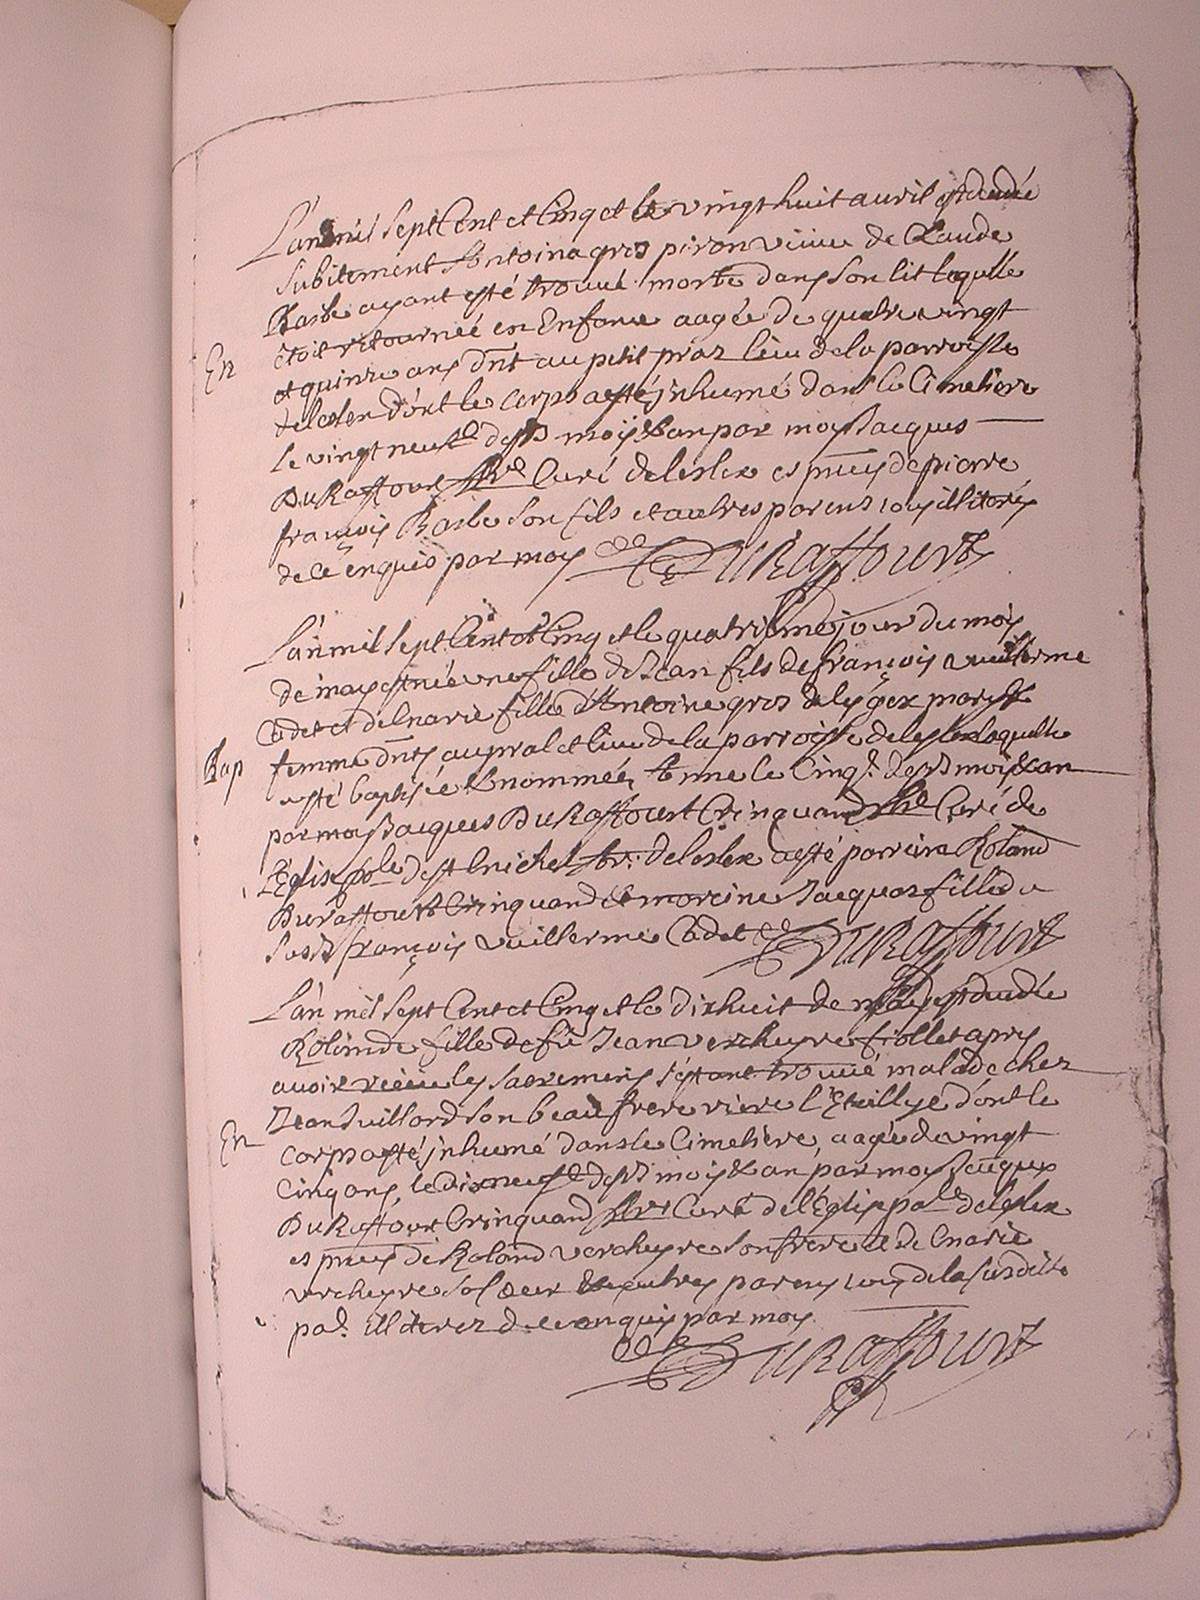 L'an mil sept Cent et Cinq et le vingt huit auril est decedée
subitement Antoina gros piron veuue de Claude
Barbe ayant esté trouué morte dans son lit laquelle
étoit retournée en Enfance aagée de quatre vingt
En
et quinze ans dnt au petit praz lieu de la parroisse
de lesler dont le corps a esté jnhumé dans le Cimetiere
le vingt neuf dud mois & an par moy Jacques
DuRaffourt Curé de lesler es pnces de pierre
françois Barbe son fils et autres parens illiterés
de ce enquis par moy DuRaffourt
L'an mil sept Cent et Cinq et le quatrieme jour du mois
de may est née vne fille de Jean fils de françois vuillerme
Cadet et de Marie fille d'Antoine gros de mariés
Bap
femme dnts au pral et lieu de la parroisse de lesler laquelle
a esté baptisée & nommée Anne le Cinq dud mois & an
par moy Jacques DuRaffourt Crinquand Curé de
l'Eglise de st Michel de lesler a esté parrein Roland
Duraffourt Crinquand & mareine Jacquaz fille du
susd françois vuillerme Cadet DuRaffourt
L'an mil sept Cent et Cinq et le dixhuit de may est decedée
Rolande fille de fu Jean vercheyre fiollet apres
auoir receu les sacremens s'estant trouué malade chez
Jean Juillard son beau frere dont le
En
corps a esté jnhumé dans le Cimetiere, aagée de vingt
Cinq ans, le dix neuf dud mois & an par moy Jacques
DuRaffour Crinquand Curé de l'Eglise de lesler
es pnces de Roland vercheyre son frere et de Marie
vercheyre sa soeur & autres parens de la susditte
illiterez de ce enquis par moy
DuRaffourt